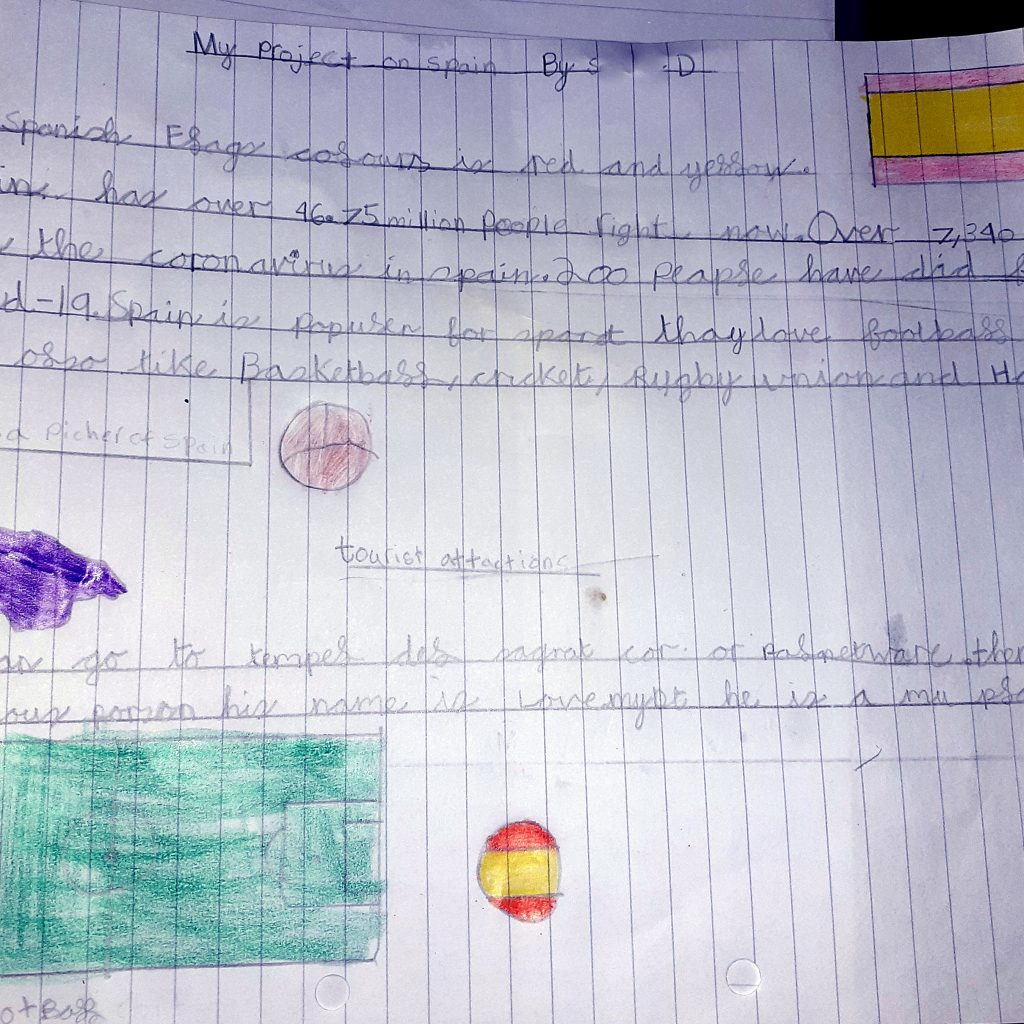 My project on spain By S D
spanish Flags colours is red and yellow.
has over 46.75 million people right now. Over 7,340
the coronavirus in spain. 200 peaple have did
d-19. Spain is populer for sport thay love football
olso like Basketball, cricket, Rugby union and Ho
a picher of spain
tourist attactions
go to tempel del sagrat cor. of
person his name is he is a mu
ot Ball